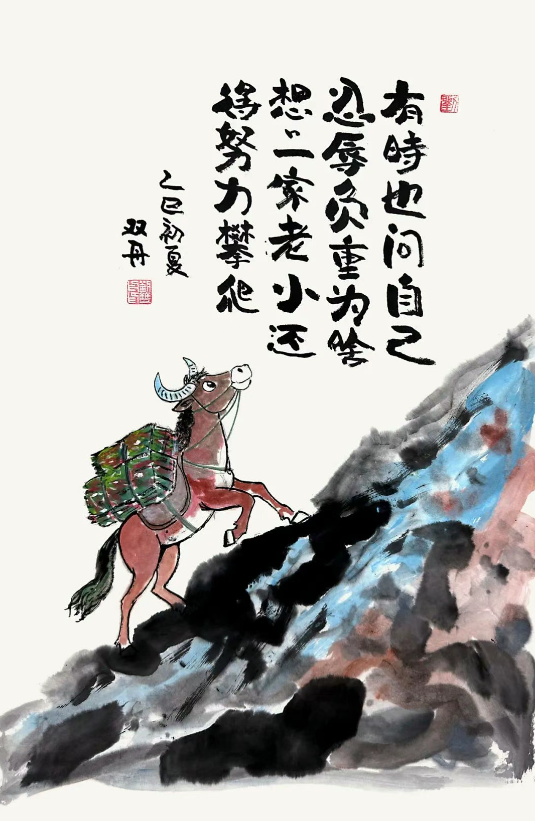 有時也问自己
忍辱负重为啥
想想一家老小还
得努力攀爬
乙巳初夏
双丹